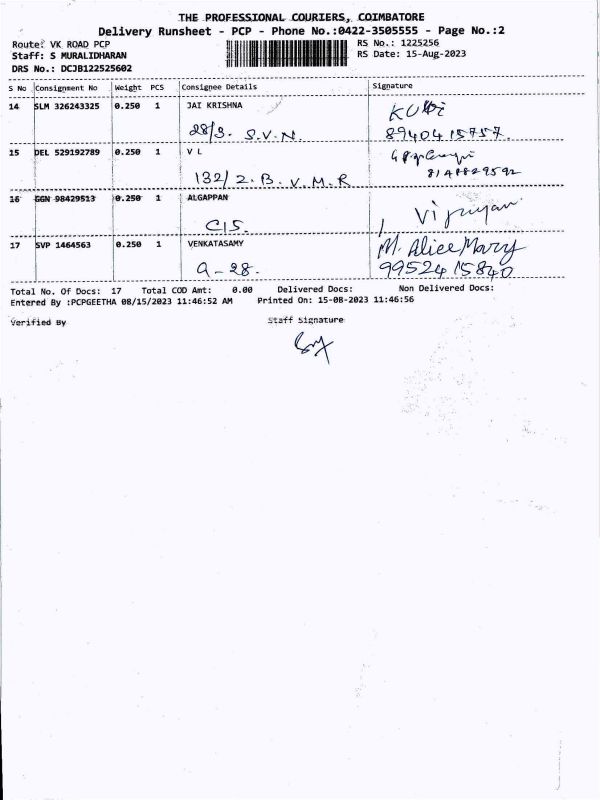 THE PROFESSIONAL COURIERS, COIMBATORE
Delivery Runsheet - PCP - Phone No.:0422-3505555 - Page No.:2
Route: VK ROAD PCP
RS No.: 1225256
Staff: S MURALIDHARAN
RS Date: 15-Aug-2023
DRS No.: DCJB122525602
S No Consignment No Weight PCS Consignee Details Signature
14 SLM 326243325 0.250 1 JAI KRISHNA
28/3. S.V.N. 8940415757.
15 DEL 529192789 0.250 1 V L
132/2.B.V.M.R 8148829592
16 GGN 98429513 0.250 1 ALGAPPAN
C15.
17 SVP 1464563 0.250 1 VENKATASAMY M. Alice Mary
9-28. 9952415840
Total No. Of Docs: 17 Total COD Amt: 0.00 Delivered Docs: Non Delivered Docs:
Entered By :PCPGEETHA 08/15/2023 11:46:52 AM Printed On: 15-08-2023 11:46:56
Verified By Staff Signature